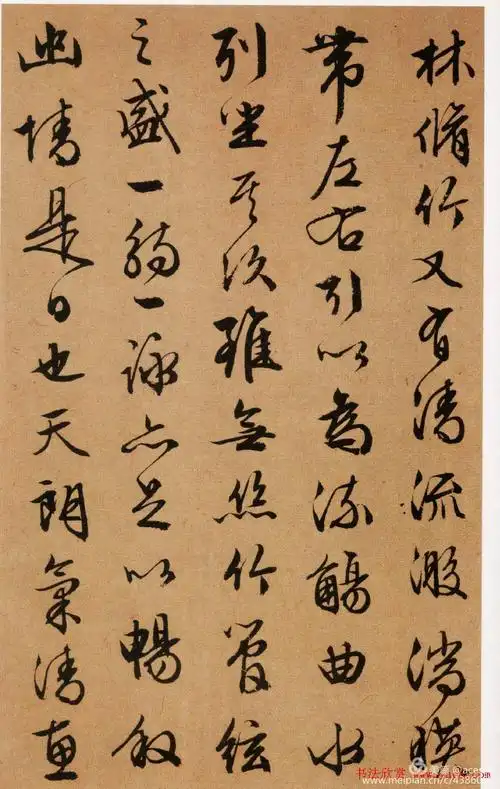 林脩竹又有清流激湍暎
帶左右引以為流觴曲水
列坐其次雖無絲竹管絃
之盛一觴一詠亦足以暢敘
幽情是日也天朗氣清惠
书法欣赏